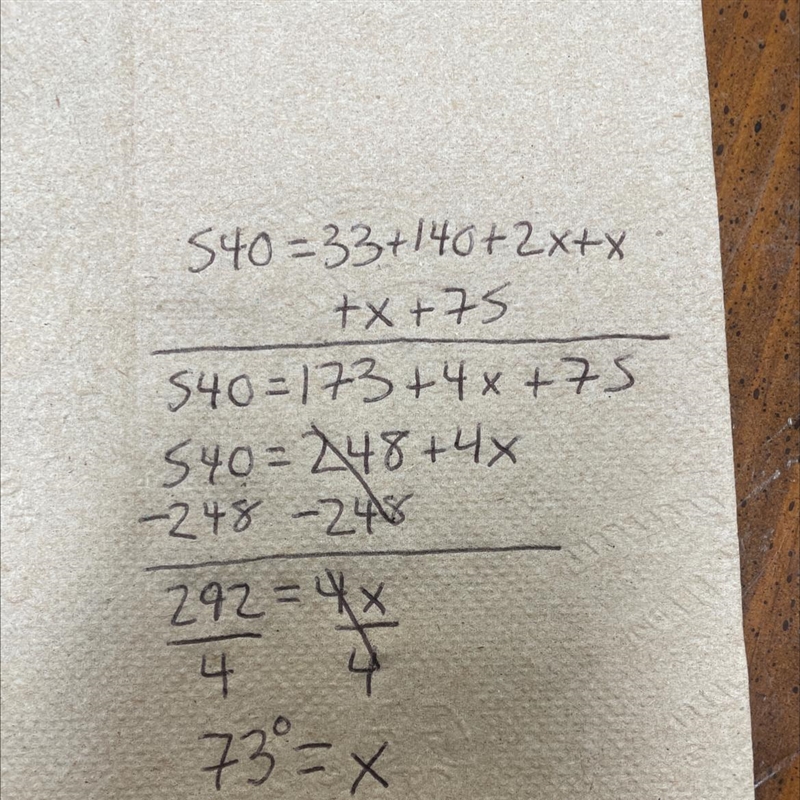 540 = 33 + 140 + 2x + x
+ x + 75
540 = 173 + 4x + 75
540 = 248 + 4x
-248 -248
292 = 4x
4 4
73° = x